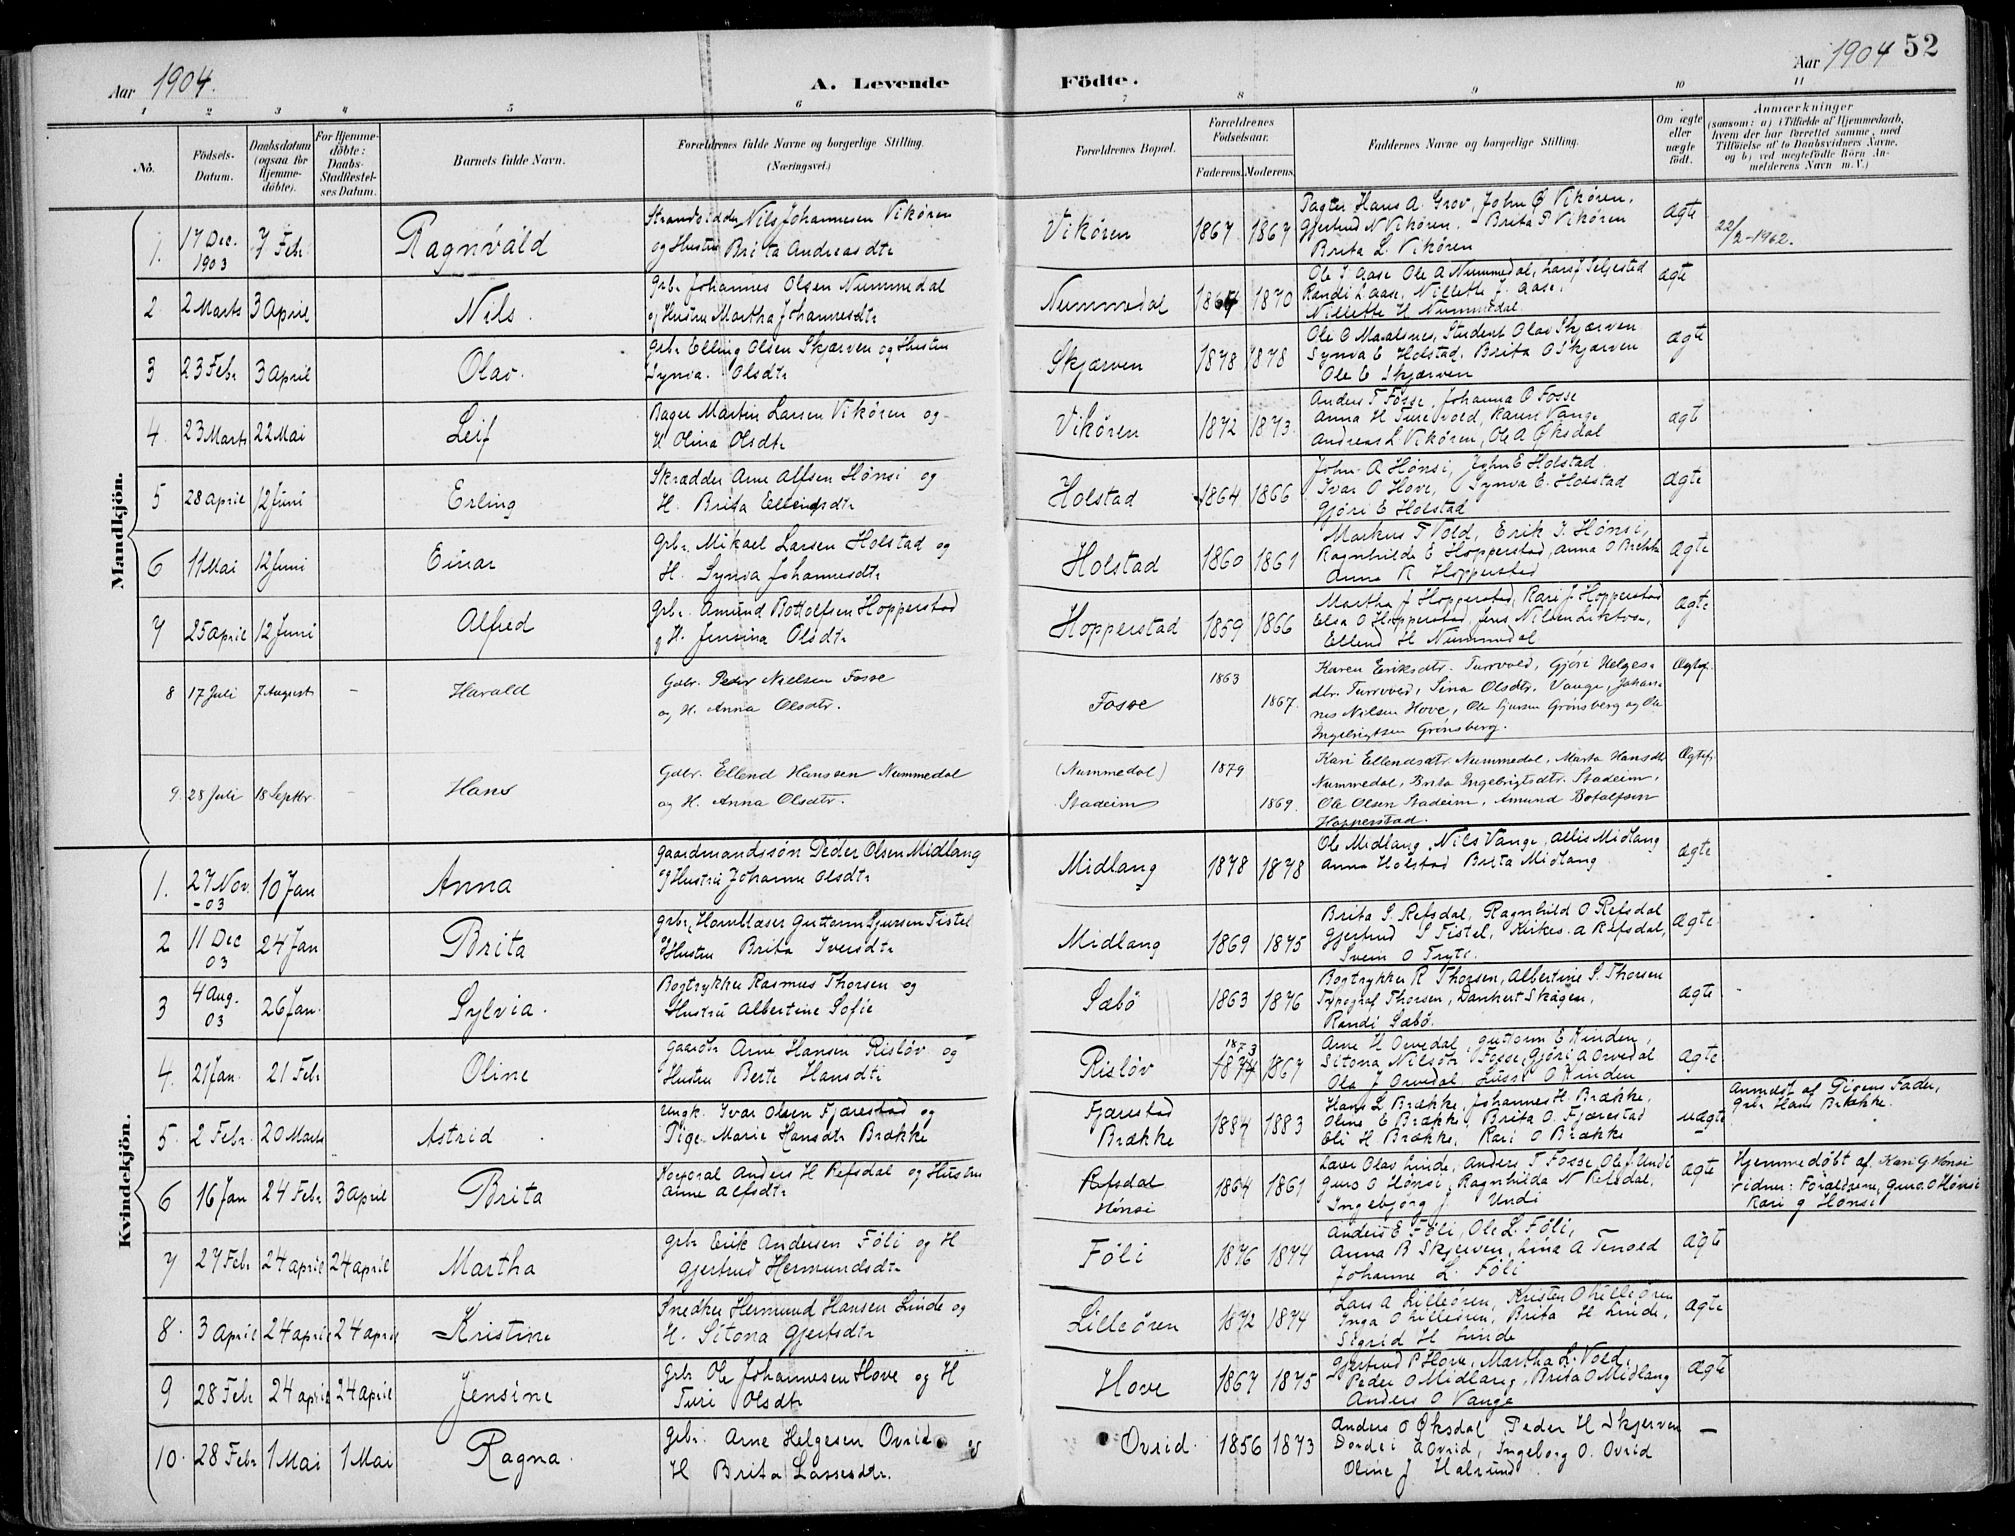 Aar 1904.
A. Levende Födte.
Aar 1904 52
1 2 3 4 5 6 7 8 9 10 11
No. Födsels-Datum. Daabsdatum (ogsaa for Hjemme-döbte). For Hjemme-döbte: Daabs-Stadfæstel-ses Datum. Barnets fulde Navn. Forældrenes fulde Navne og borgerlige Stilling. (Næringsvei.) Forældrenes Bopæl. Forældrenes Födselsaar. Faderens. Moderens. Faddernes Navne og borgerlige Stilling. Om ægte eller uægte födt. Anmærkninger (saasom: a) i Tilfælde af Hjemmedaab, hvem der har forrettet samme, med Tilföielse af to Daabsvidners Navne, og b) ved uegtefödte Börn An-melderens Navn m. V.)
Mandkjön.
1. 17 Dec. 1903 7 Febr Ragnvald Strandsidder Nils Johannesen Vikören
og Hustru Brita Andreasdtr Vikören 1867 1867
Pagter Hans A. Grov, John O Vikören,
Gjertrud N Vikören. Brita P Vikören
Brita L. Vikören ægte 22/2-1962.
2 2 Marts 3 April Nils. Gbr. Johannes Olsen Nummedal
og Hustru Martha Johannesdtr Nummedal 1864 1870
Ole I Aase Ole A Nummedal, Lars J Seljestad
Randi L Aase, Nillette J. Aase,
Nillette H Nummedal ægte
3 23 Febr 3 April Olav. Gbr. Elling Olsen Skjærven og Hustru
Synva Olsdtr Skjærven 1878 1878
Ole O Maalsnes, Student Olav Skjærven
Synva E Holstad, Brita O Skjærven
Ole E Skjærven ægte
4 23 Marts 22 Mai Leif Bager Martin Larsen Vikören og
H Olina Olsdtr Vikören 1872 1873
Anders T Fosse, Johanna O Fosse
Anna H Turvold, Karen Vange
Andreas L Vikören, Ole A Øksdal ægt
5 28 April 12 Juni Erling Skrædder Arne Alfsen Hönsi og
H. Brita Ellendsdtr Holstad 1864 1866
John A Hönsi, John E Holstad
Ivar O Hove, Synva E. Holstad
Gjöri E Holstad ægte
6 11 Mai 12 Juni Einar Gbr. Mikael Larsen Holstad og
H. Synva Johannesdtr Holstad 1860 1861
Markus T Vold, Erik I. Hönsi,
Ragnhilde E Hopperstad, Anna O Brekke
Anna R Hopperstad ægte
7 25 April 12 Juni Alfred Gbr. Amund Bottolfsen Hopperstad
og H. Jensina Olsdtr Hopperstad 1859 1866
Martha J Hopperstad, Kari J Hopperstad
Elsa O Hopperstad, Jens Nilsen
Ellend H Nummedal ægte
8 17 Juli 7 August – Harald Gdbr. Peder Nielsen Fosse
og H. Anna Olsdtr. Fosse 1863 1867.
Karen Eriksdtr. Turvold, Gjöri Helges-
dtr. Turvold, Sina Olsdtr. Vange, Johan-
nes Nilsen Hove, Ole Sjursen Grönsberg og Ole
Ingebrigtsen Grönsberg. Ægtef.
9. 28 Juli 18 Septbr. – Hans Gdbr. Ellend Hanssen Nummedal
og H. Anna Olsdtr. (Nummedal) Stadeim 1879 1869.
Kari Ellendsdtr Nummedal, Marta Hansdtr
Nummedal, Brita Ingebrigtsdtr. Stadeim,
Ole Olsen Stadeim, Amund Botolfsen
Hopperstad. Ægtef.
Kvindekjön.
1. 27 Nov. -03 10 Jan Anna Gaardmandssön Peder Olsen Midlang
og Hustru Johanne Olsdtr Midlang 1878 1878
Ole Midlang, Nils Vange, Allis Midlang
Anna Holstad Brita Midlang ægte
2 11 Dec 03 24 Jan Brita Gbr, Hornblæser Guttorm Sjursen Tistel
og Hustru Brita Iversdtr Midlang 1869 1875
Brita S. Refsdal, Ragnhild O Refsdal
Gjertrud S Tistel, Kirkes. A Refsdal,
Svein O Tryti. Ægte
3 4 Aug. 03 26 Jan. Sylvia. Bogtrykker Rasmus Thorsen og
Hustru Albertine Sofie Sæbö 1863 1876
Bogtrykker R Thorsen, Albertine S. Thorsen
Typograf Thorsen, Dankert Skagen,
Randi Sæbö. ægte
4. 21 Jan. 21 Febr Oline Gaardbr Arne Hansen Rislöv og
Hustru Berte Hansdtr Rislöv 1873 1874 1867
Arne H Orvedal, Guttorm E Hinden,
Sitona Nilsdtr Fosse, Gjöri A Orvedal
Ola J Orvedal Lussi O Hinden ægte
5. 2 Febr. 20 Marts Astrid Ungk. Ivar Olsen Fjærestad og
Pige Marie Hansdtr Brække Fjærestad Brække 1884 1883
Hans L Brække, Johannes H. Brække,
Oline E Brække, Brita O. Fjærestad
Eli H Brække, Kari O Brække uægte Anmeldt af Pigens Fader,
Gbr Hans Brække.
6 16 Jan 24 Febr 3 April Brita Korporal Anders H Refsdal og Hustru
Anne Alfsdtr Refsdal Hönsi 1864 1861
Lærer Olav Linde, Anders T Fosse Ole J Undi
Guro O Hönsi, Ragnhilda N Refsdal,
Ingebjörg J Undi ægte Hjemmedöbt af Kari G Hönsi
Vidner: Forældrene, Guro. O Hönsi
Kari G Hönsi
7 27 Febr 24 April 24 April Martha Gbr Erik Andersen Föli og H
Gjertrud Hermundsdtr Föli 1876 1874
Anders E Föli, Ole L. Föli,
Anna B Skjerven, Lina A Tenold
Johanne L. Föli ægte
8. 3 April 24 April 24 April Kristine Snedker Hermund Hansen Linde og
H. Sitona Gjertsdtr Lilleören 1872 1874
Lars A Lilleören, Kristen O Lilleören
Inga O Lilleören, Brita H Linde,
Sigrid H Linde ægte
9 28 Febr 24 April 24 April Jensine Gbr Ole Johannesen Hove og H
Turi Olsdtr Hove 1867 1875
Gjertrud P Hove, Martha L. Vold,
Peder O Midlang, Brita O Midlang
Anders O Vange ægte
10. 28 Febr 1 Mai 1 Mai Ragna. Gbr. Arne Helgesen Ovrid
H Brita Lassesdtr. Ovrid. 1856 1873
Anders O Øksdal, Peder H Skjerven
Dordei A Ovrid, Ingeborg O. Ovrid
Oline J Halsund –